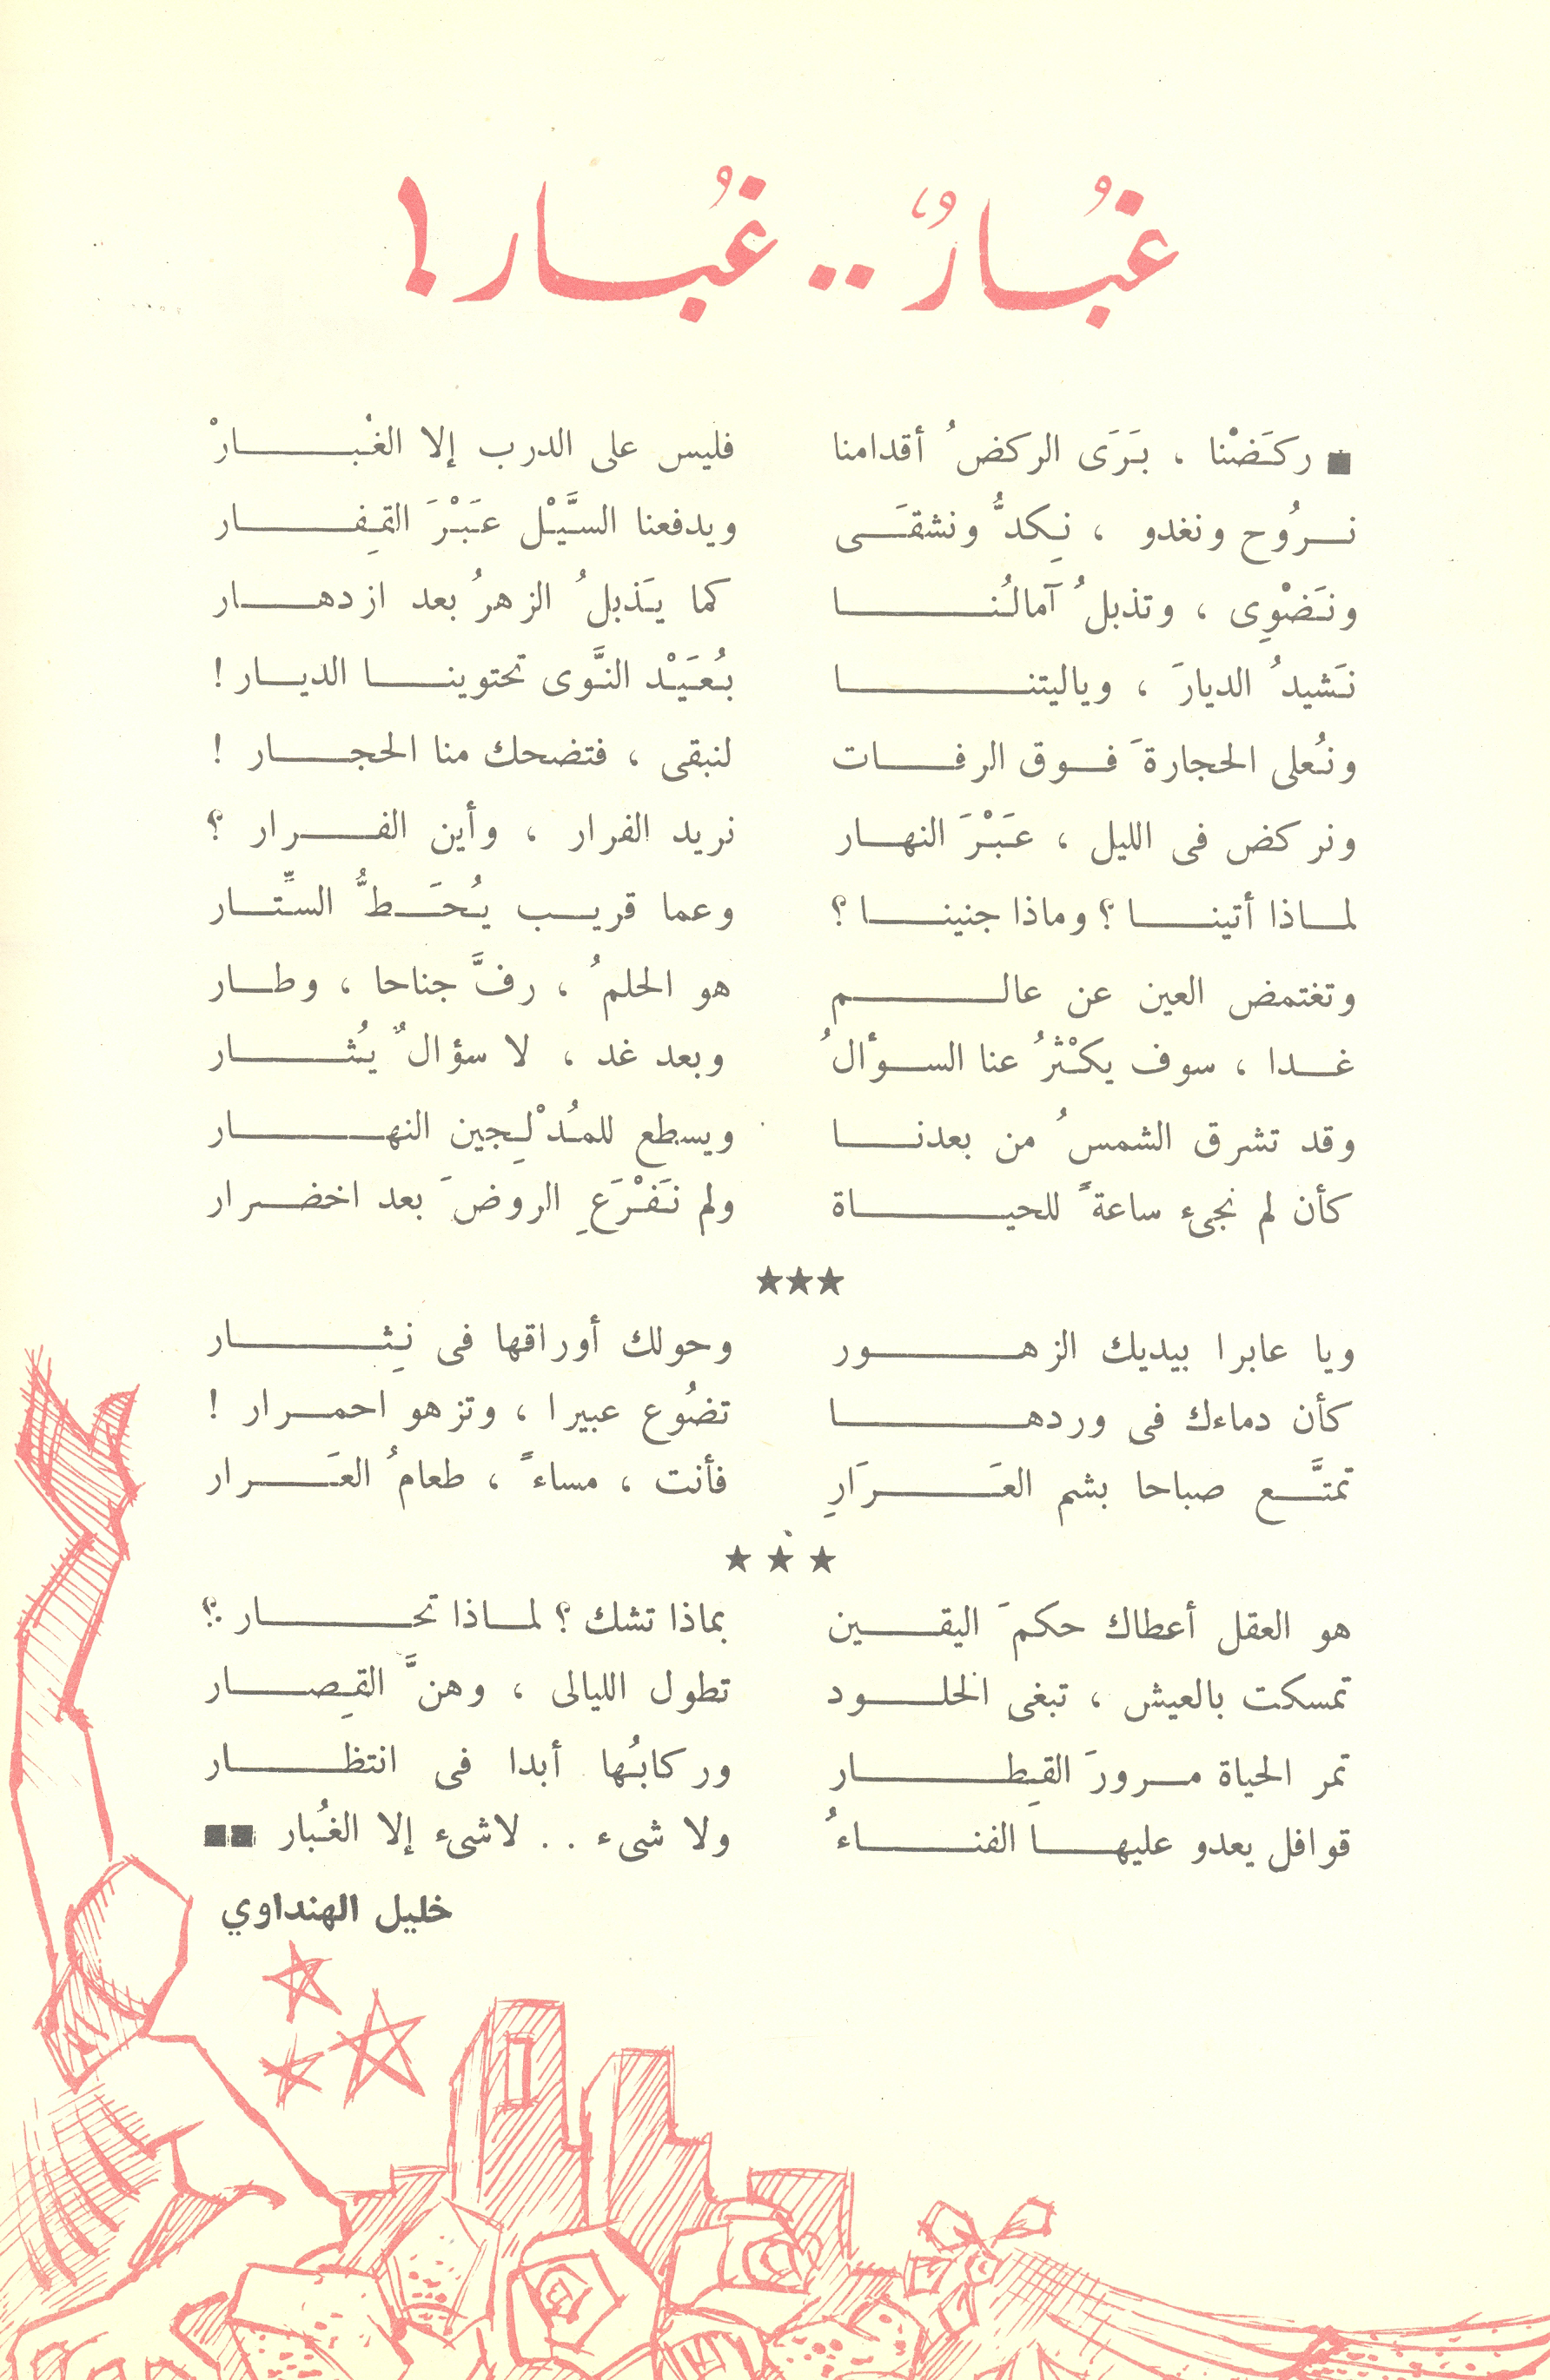 غُبارٌ .. غُبار !
■ ركَضْنا ، بَرَى الركضُ أقدامنا فليس على الدرب إلا الغُبارْ
نروُح ونغدو ، نكِدُّ ونشقَى ويدفعنا السَّيْل عَبْرَ القِفار
ونَضْوِى ، وتذبلُ آمالُنا كما يَذبلُ الزهرُ بعد ازدهار
نَشيدُ الديارَ ، وياليتنا بُعَيْد النَّوى تحتوينا الديار !
ونُعلى الحجارةَ فوق الرفات لنبقى ، فتضحك منا الحجار !
ونركض فى الليل ، عَبْرَ النهار نريد الفرار ، وأين الفرار ؟
لماذا أتينا ؟ وماذا جنينا ؟ وعما قريب يُحَطُّ السِّتار
وتغتمض العين عن عالم هو الحلمُ ، رفَّ جناحا ، وطار
غدا ، سوف يكْثرُ عنا السؤالُ وبعد غد ، لا سؤالٌ يُثار
وقد تشرق الشمسُ من بعدنا ويسطع للمُدْلِجين النهار
كأن لم نجىء ساعةً للحياة ولم نَفْرَعِ الروضَ بعد اخضرار
★★★
ويا عابرا بيديك الزهور وحولك أوراقها فى نِثار
كأن دماءك فى وردها تضُوع عبيرا ، وتزهو احمرار !
تمتَّع صباحا بشم العَرَارِ فأنت ، مساءً ، طعامُ العَرار
★ ★ ★
هو العقل أعطاك حكمَ اليقين بماذا تشك ؟ لماذا تحار ؟
تمسكت بالعيش ، تبغى الخلود تطول الليالى ، وهنَّ القِصار
تمر الحياة مرورَ القِطار وركابُها أبدا فى انتظار
قوافل يعدو عليها الفناءُ ولا شىء .. لاشىء إلا الغُبار ■■
خليل الهنداوي